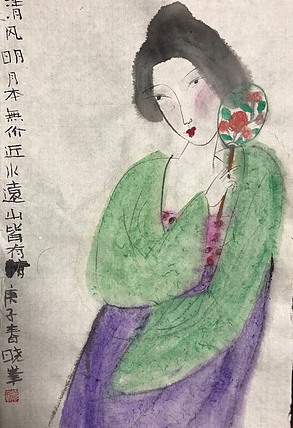 清风明月本無价近水遠山皆有情庚子春晓峯